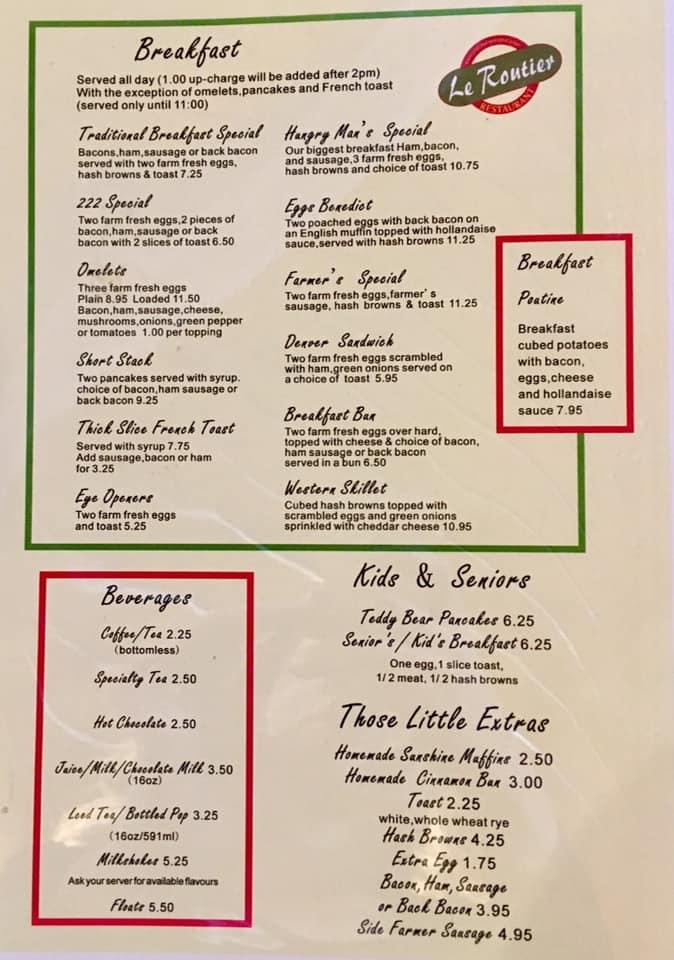 Breakfast
Served all day (1.00 up-charge will be added after 2pm)
With the exception of omelets,pancakes and French toast
(served only until 11:00)
Le Routier
RESTAURANT
Traditional Breakfast Special
Bacons,ham,sausage or back bacon
served with two farm fresh eggs,
hash browns & toast 7.25
222 Special
Two farm fresh eggs,2 pieces of
bacon,ham,sausage or back
bacon with 2 slices of toast 6.50
Omelets
Three farm fresh eggs
Plain 8.95 Loaded 11.50
Bacon,ham,sausage,cheese,
mushrooms,onions,green pepper
or tomatoes 1.00 per topping
Short Stack
Two pancakes served with syrup.
choice of bacon,ham sausage or
back bacon 9.25
Thick Slice French Toast
Served with syrup 7.75
Add sausage,bacon or ham
for 3.25
Eye Openers
Two farm fresh eggs
and toast 5.25
Hungry Man's Special
Our biggest breakfast Ham,bacon,
and sausage,3 farm fresh eggs,
hash browns and choice of toast 10.75
Eggs Benedict
Two poached eggs with back bacon on
an English muffin topped with hollandaise
sauce,served with hash browns 11.25
Farmer's Special
Two farm fresh eggs,farmer's
sausage, hash browns & toast 11.25
Denver Sandwich
Two farm fresh eggs scrambled
with ham,green onions served on
a choice of toast 5.95
Breakfast Bun
Two farm fresh eggs over hard,
topped with cheese & choice of bacon,
ham sausage or back bacon
served in a bun 6.50
Western Skillet
Cubed hash browns topped with
scrambled eggs and green onions
sprinkled with cheddar cheese 10.95
Breakfast
Poutine
Breakfast
cubed potatoes
with bacon,
eggs,cheese
and hollandaise
sauce 7.95
Beverages
Coffee/Tea 2.25
(bottomless)
Specialty Tea 2.50
Hot Chocolate 2.50
Juice/Milk/Chocolate Milk 3.50
(16oz)
Iced Tea/ Bottled Pop 3.25
(16oz/591ml)
Milkshakes 5.25
Ask your server for available flavours
Floats 5.50
Kids & Seniors
Teddy Bear Pancakes 6.25
Senior's / Kid's Breakfast 6.25
One egg,1 slice toast,
1/2 meat, 1/2 hash browns
Those Little Extras
Homemade Sunshine Muffins 2.50
Homemade Cinnamon Bun 3.00
Toast 2.25
white,whole wheat rye
Hash Browns 4.25
Extra Egg 1.75
Bacon, Ham, Sausage
or Back Bacon 3.95
Side Farmer Sausage 4.95